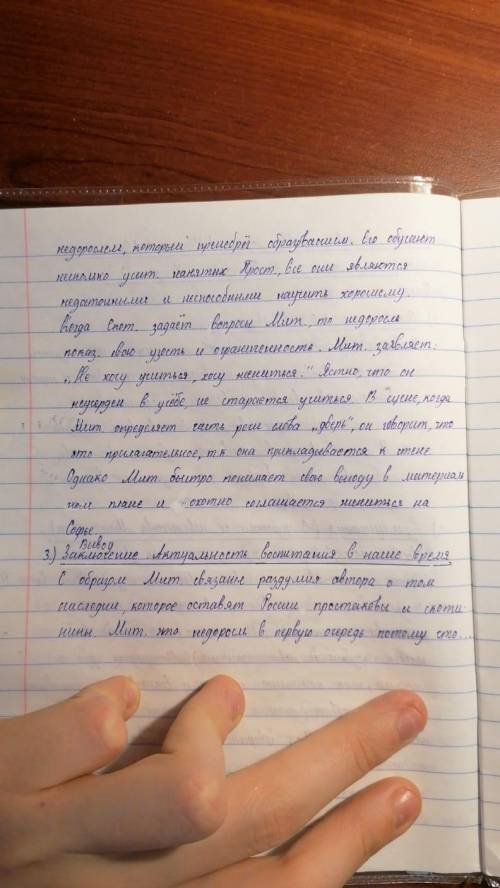 недорослем, который пренебрёг образованием. Его обучают
несколько учит. нанятых Прост., все они являются
недостойными и неспособными научить хорошему.
Когда Скот. задаёт вопросы Мит., то недоросль
показ. свою узость и ограниченность. Мит. заявляет:
„Не хочу учиться, хочу жениться." Ясно, что он
неусерден в учёбе, не старается учиться. В сцене, когда
Мит. определяет часть речи слова „дверь", он говорит, что
это прилагательное, т.к она прикладывается к стене.
Однако Мит. быстро понимает свою выгоду в материаль
ном плане и охотно соглашается жениться на
Софье.
Вывод
3.) Заключение Актуальность воспитания в наше время
С образом Мит. связаны раздумия автора о том
наследии, которое оставят России простаковы и скоти
нины. Мит. это недоросль в первую очередь потому что...